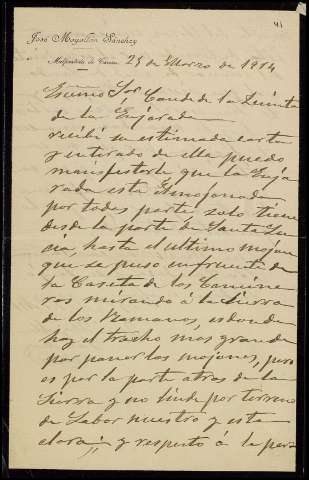 41
José Mogollón Sánchez
Malpartida de Cáceres
25 de Marzo de 1914
Escmo Sor Conde de la Quinta
de la Enjarada
recibí su estimada carta
y enterado de ella puedo
manifestarle que la Enja
rada esta Amojonada
por todas parte, solo tiene
desde la parte de Santa Lu
cia, hasta el ultimo mojon
que se puso enfrente de
la Caseta de los Camine
ros mirando á la Sierra
de los Romanos, es donde
hay el tracho mas grande
por poner los mojones, pero
es por la parte atras de la
Sierra y no linde por terreno
de Labor nuestro y esta
claro; y respecto á la pera